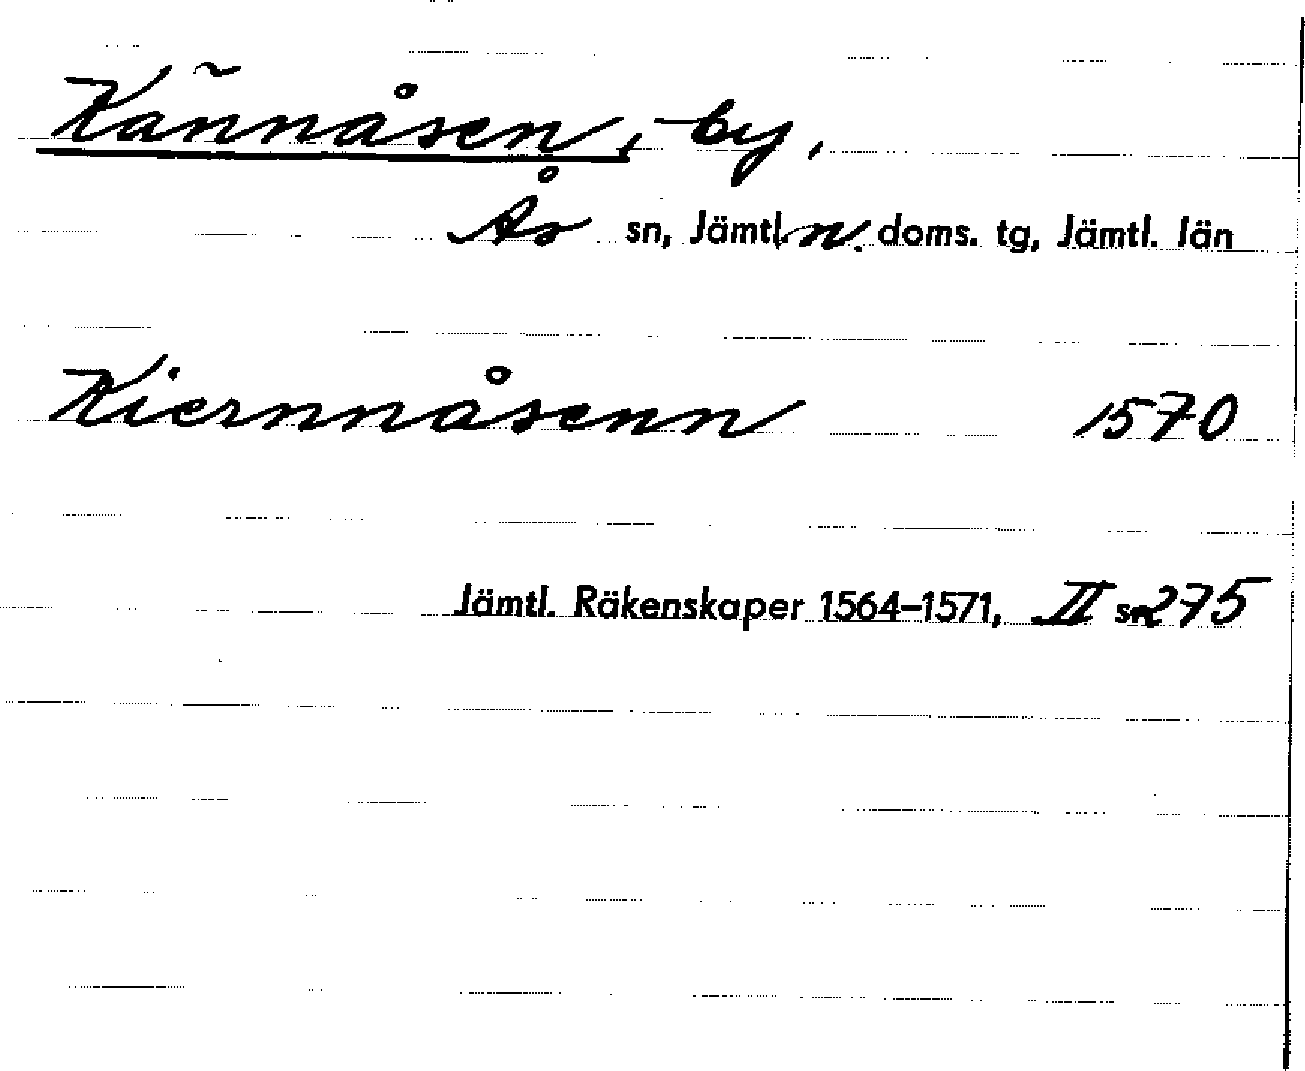 Kännåsen, by,
Ås sn, Jämtl. n. doms. tg, Jämtl. län
Kiernnåsenn 1570
Jämtl. Räkenskaper 1564–1571, II s. 275